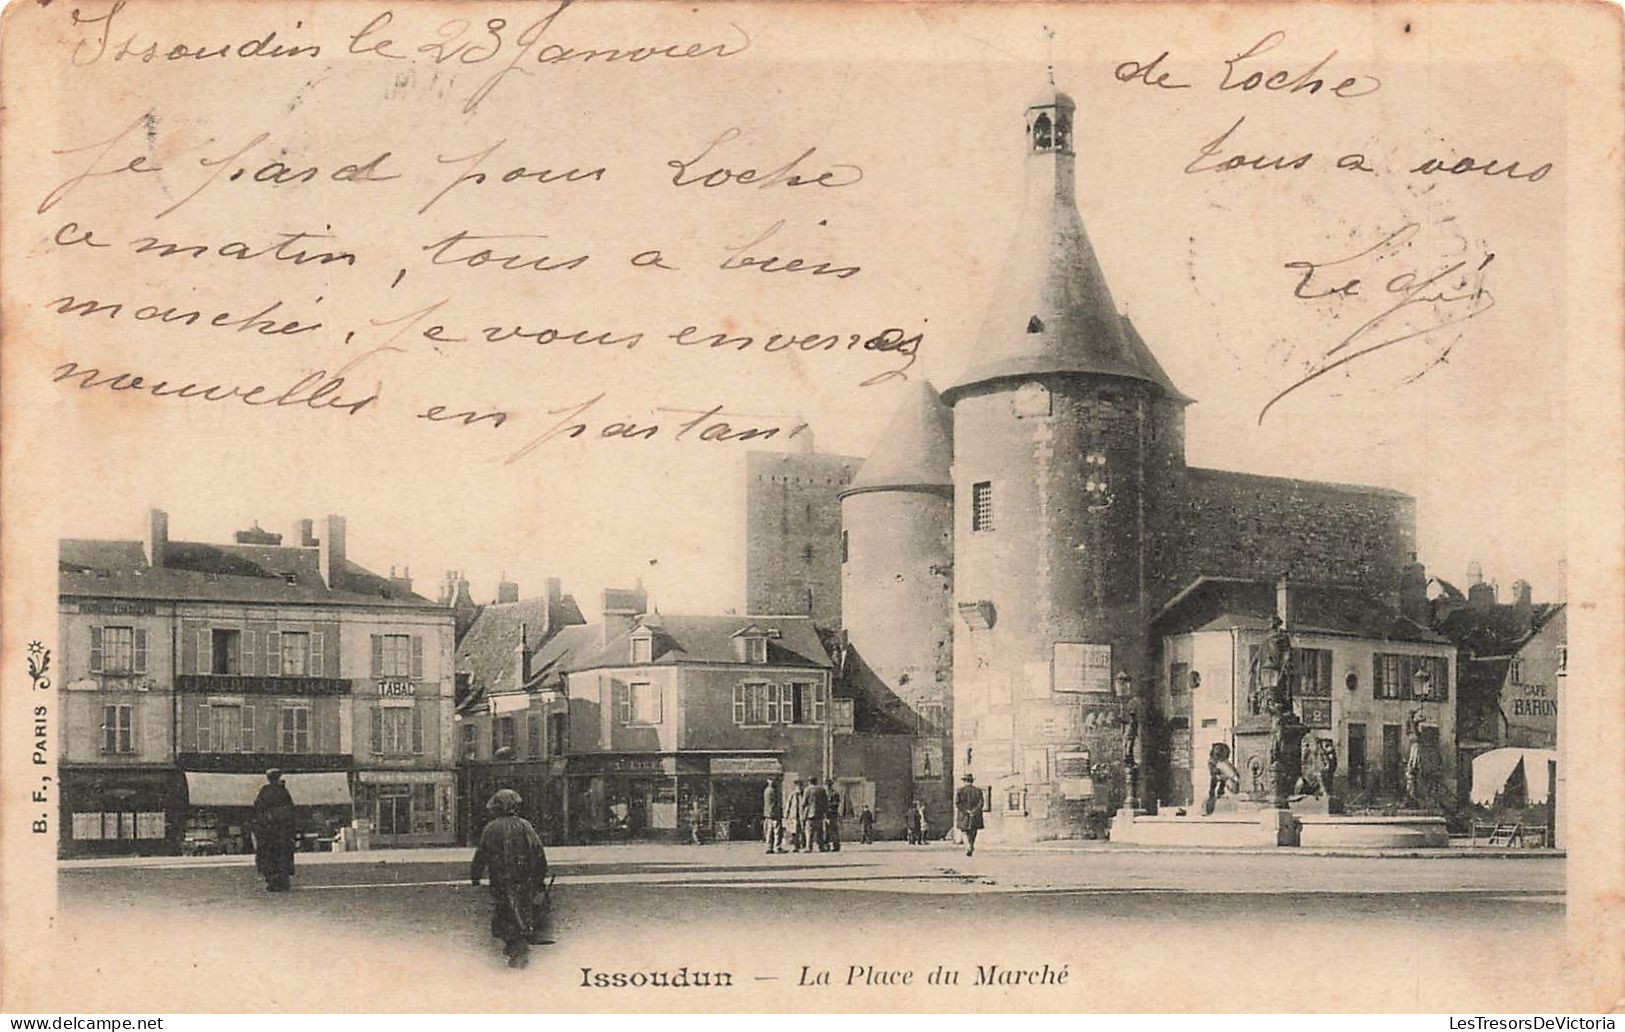 Issoudin le 23 Janvier
Je pard pour Loche
ce matin, tous a bien
marché. Je vous enverrai
nouvelles en partant
de Loche
tous a vous
B. F., PARIS
TABAC
CAFE
BARON
Issoudun — La Place du Marché
LesTresorsDeVictoria
https://www.delcampe.net